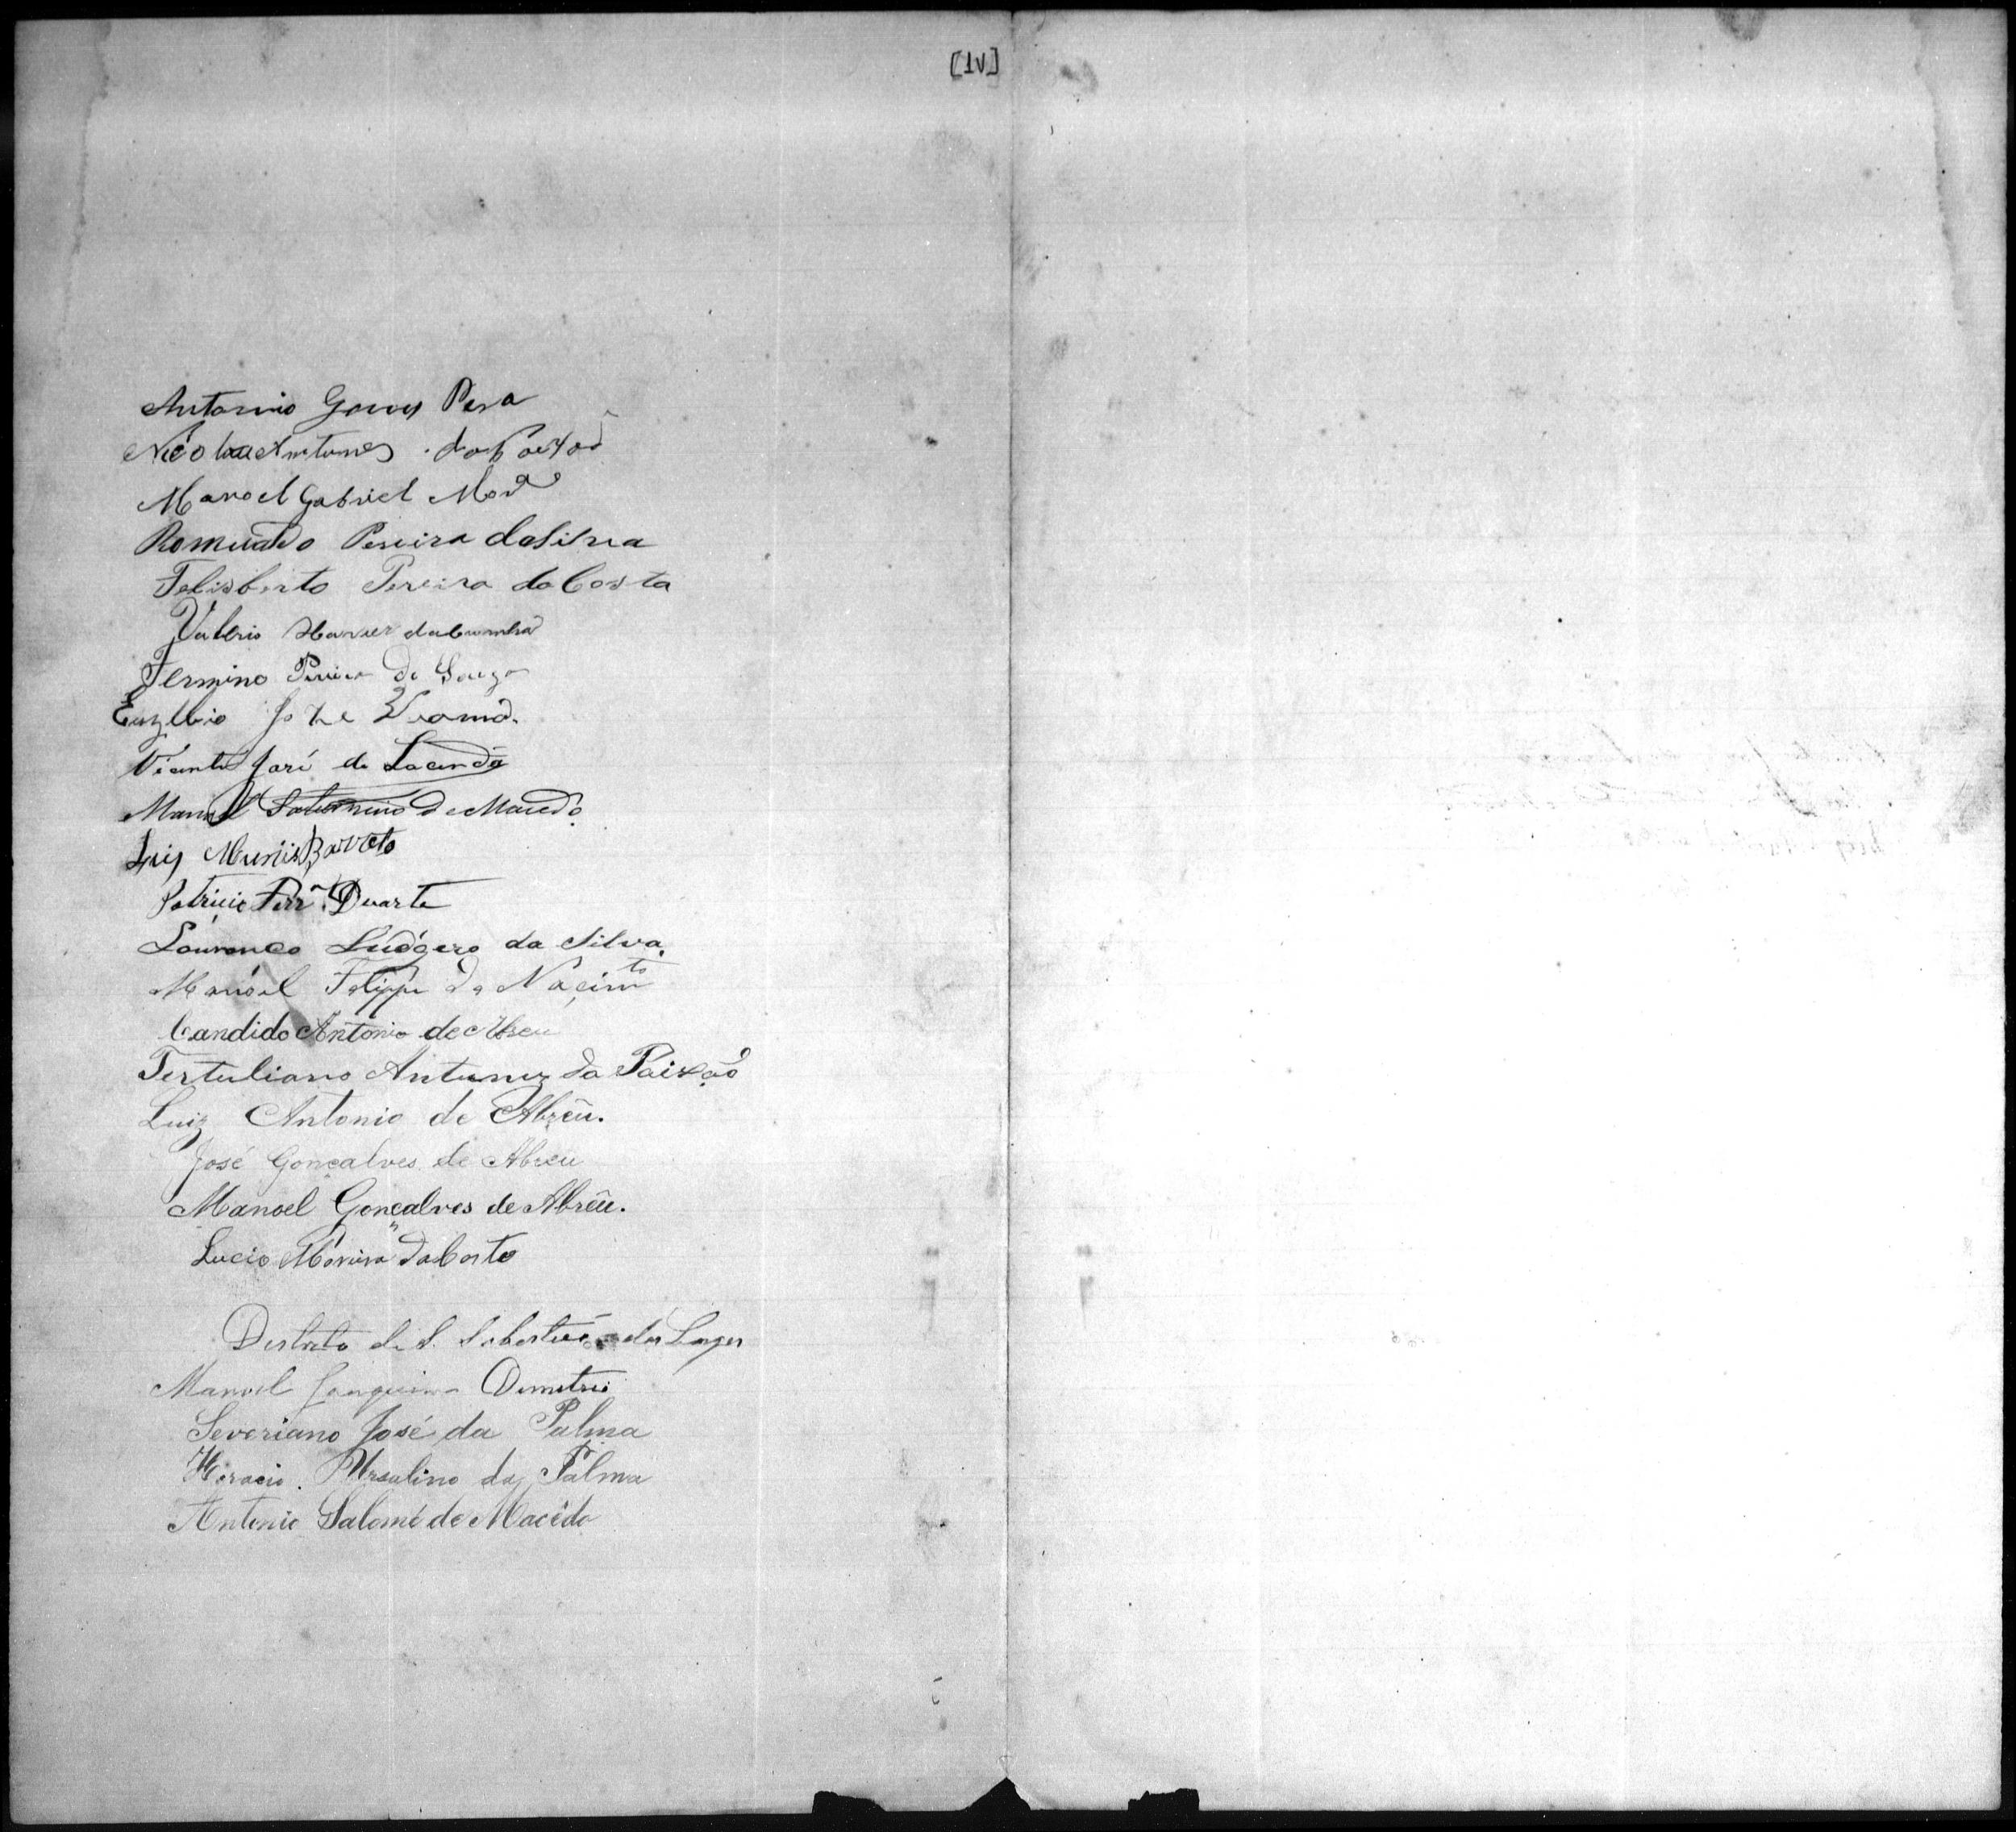 [1V]
Antonio Gomes Pera
Antunes da
Manoel Gabriel
Romualdo Pereira da Silva
Felisberto Pereira da Costa
Valerio da Cunha
Fermino Pereira de Souza
Euzebio Joze
Vicente José de Lacerda
Manoel Saturnino de Macedo
Luis Muniis Barreto
Patricio Ferr.ª Duarte
Lourenco Ludgero da Silva.
Manoel Felippe do Nacim.to
Candido Antonio de Abreu
Tertuliano Antunes da Paixão
Luiz Antonio de Abrêu.
José Gonçalves de Abreu
Manoel Gonçalves de Abrêu.
Lucio Moreira da Costa
Destricto de S. Sebastião das Lages
Manoel Joaquim Demetrio
Severiano José da Palma
Horacio Ursulino da Palma
Antonio Salomé de Macêdo